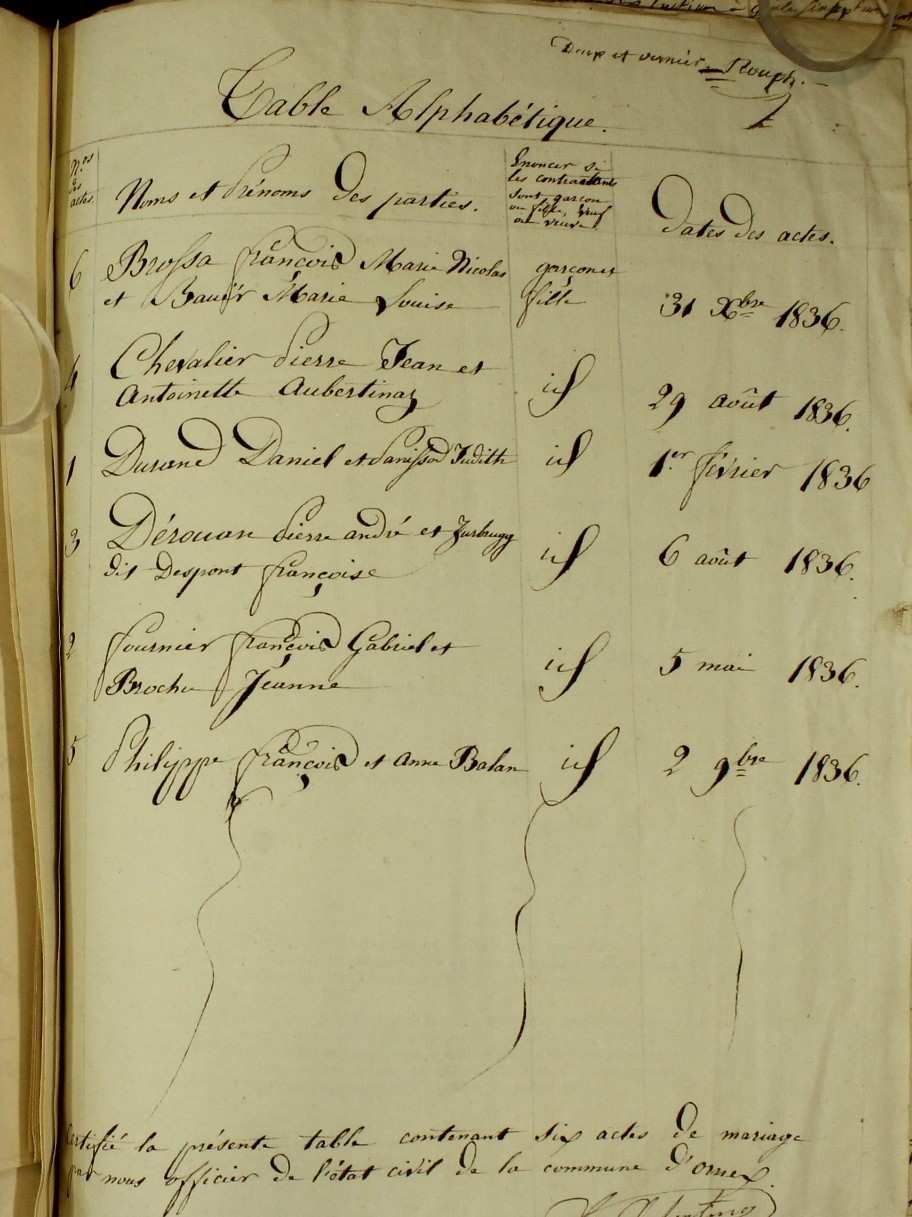 Deux et dernier. Rouph.
2
Table Alphabétique.
Nos des actes.
Noms et Prénoms des parties.
Enoncer si les contractans sont garçon ou fille, veuf ou veuve.
Dates des actes.
6 Brossa françois Marie Nicolas garçon et
et Bauër Marie Louise fille 31 Xbre 1836.
4 Chevalier Pierre Jean et
Antoinette Aubertinaz id 29 août 1836.
1 Durand Daniel et Panissod Judith id 1.er février 1836
3 Dérouan Pierre andré et Jurbrugg
dit Despont françoise id 6 août 1836.
2 fournier françois Gabriel et
Broche Jeanne id 5 mai 1836.
5 Philippe françois et Anne Balan id 2 9bre 1836.
Certifié la présente table contenant six actes de mariage
par nous officier de l'état civil de la commune d'ornex.